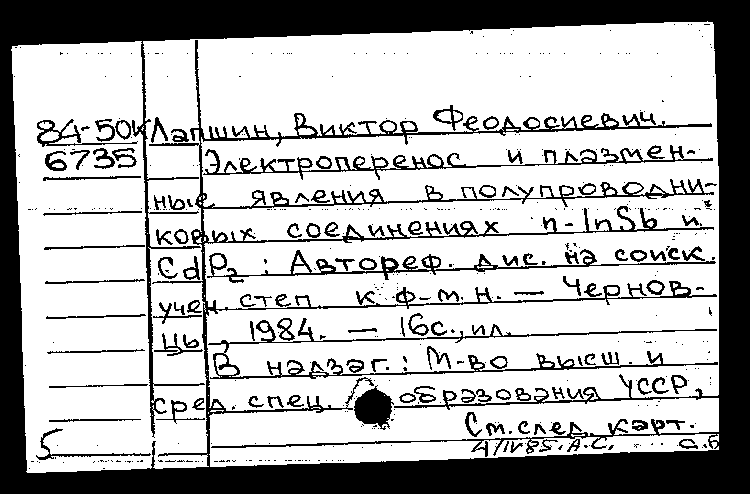 84-50к Лапшин, Виктор Феодосиевич.
6735 Электроперенос и плазмен-
ные явления в полупроводни-
ковых соединениях n-InSb и
CdP₂ : Автореф. дис. на соиск.
учен. степ. к.ф-м.н. — Чернов-
цы, 1984. — 16с., ил.
В надзаг.: М-во высш. и
сред. спец. образования УССР,
См. след. карт.
5 4/IV85. А.С. а.б